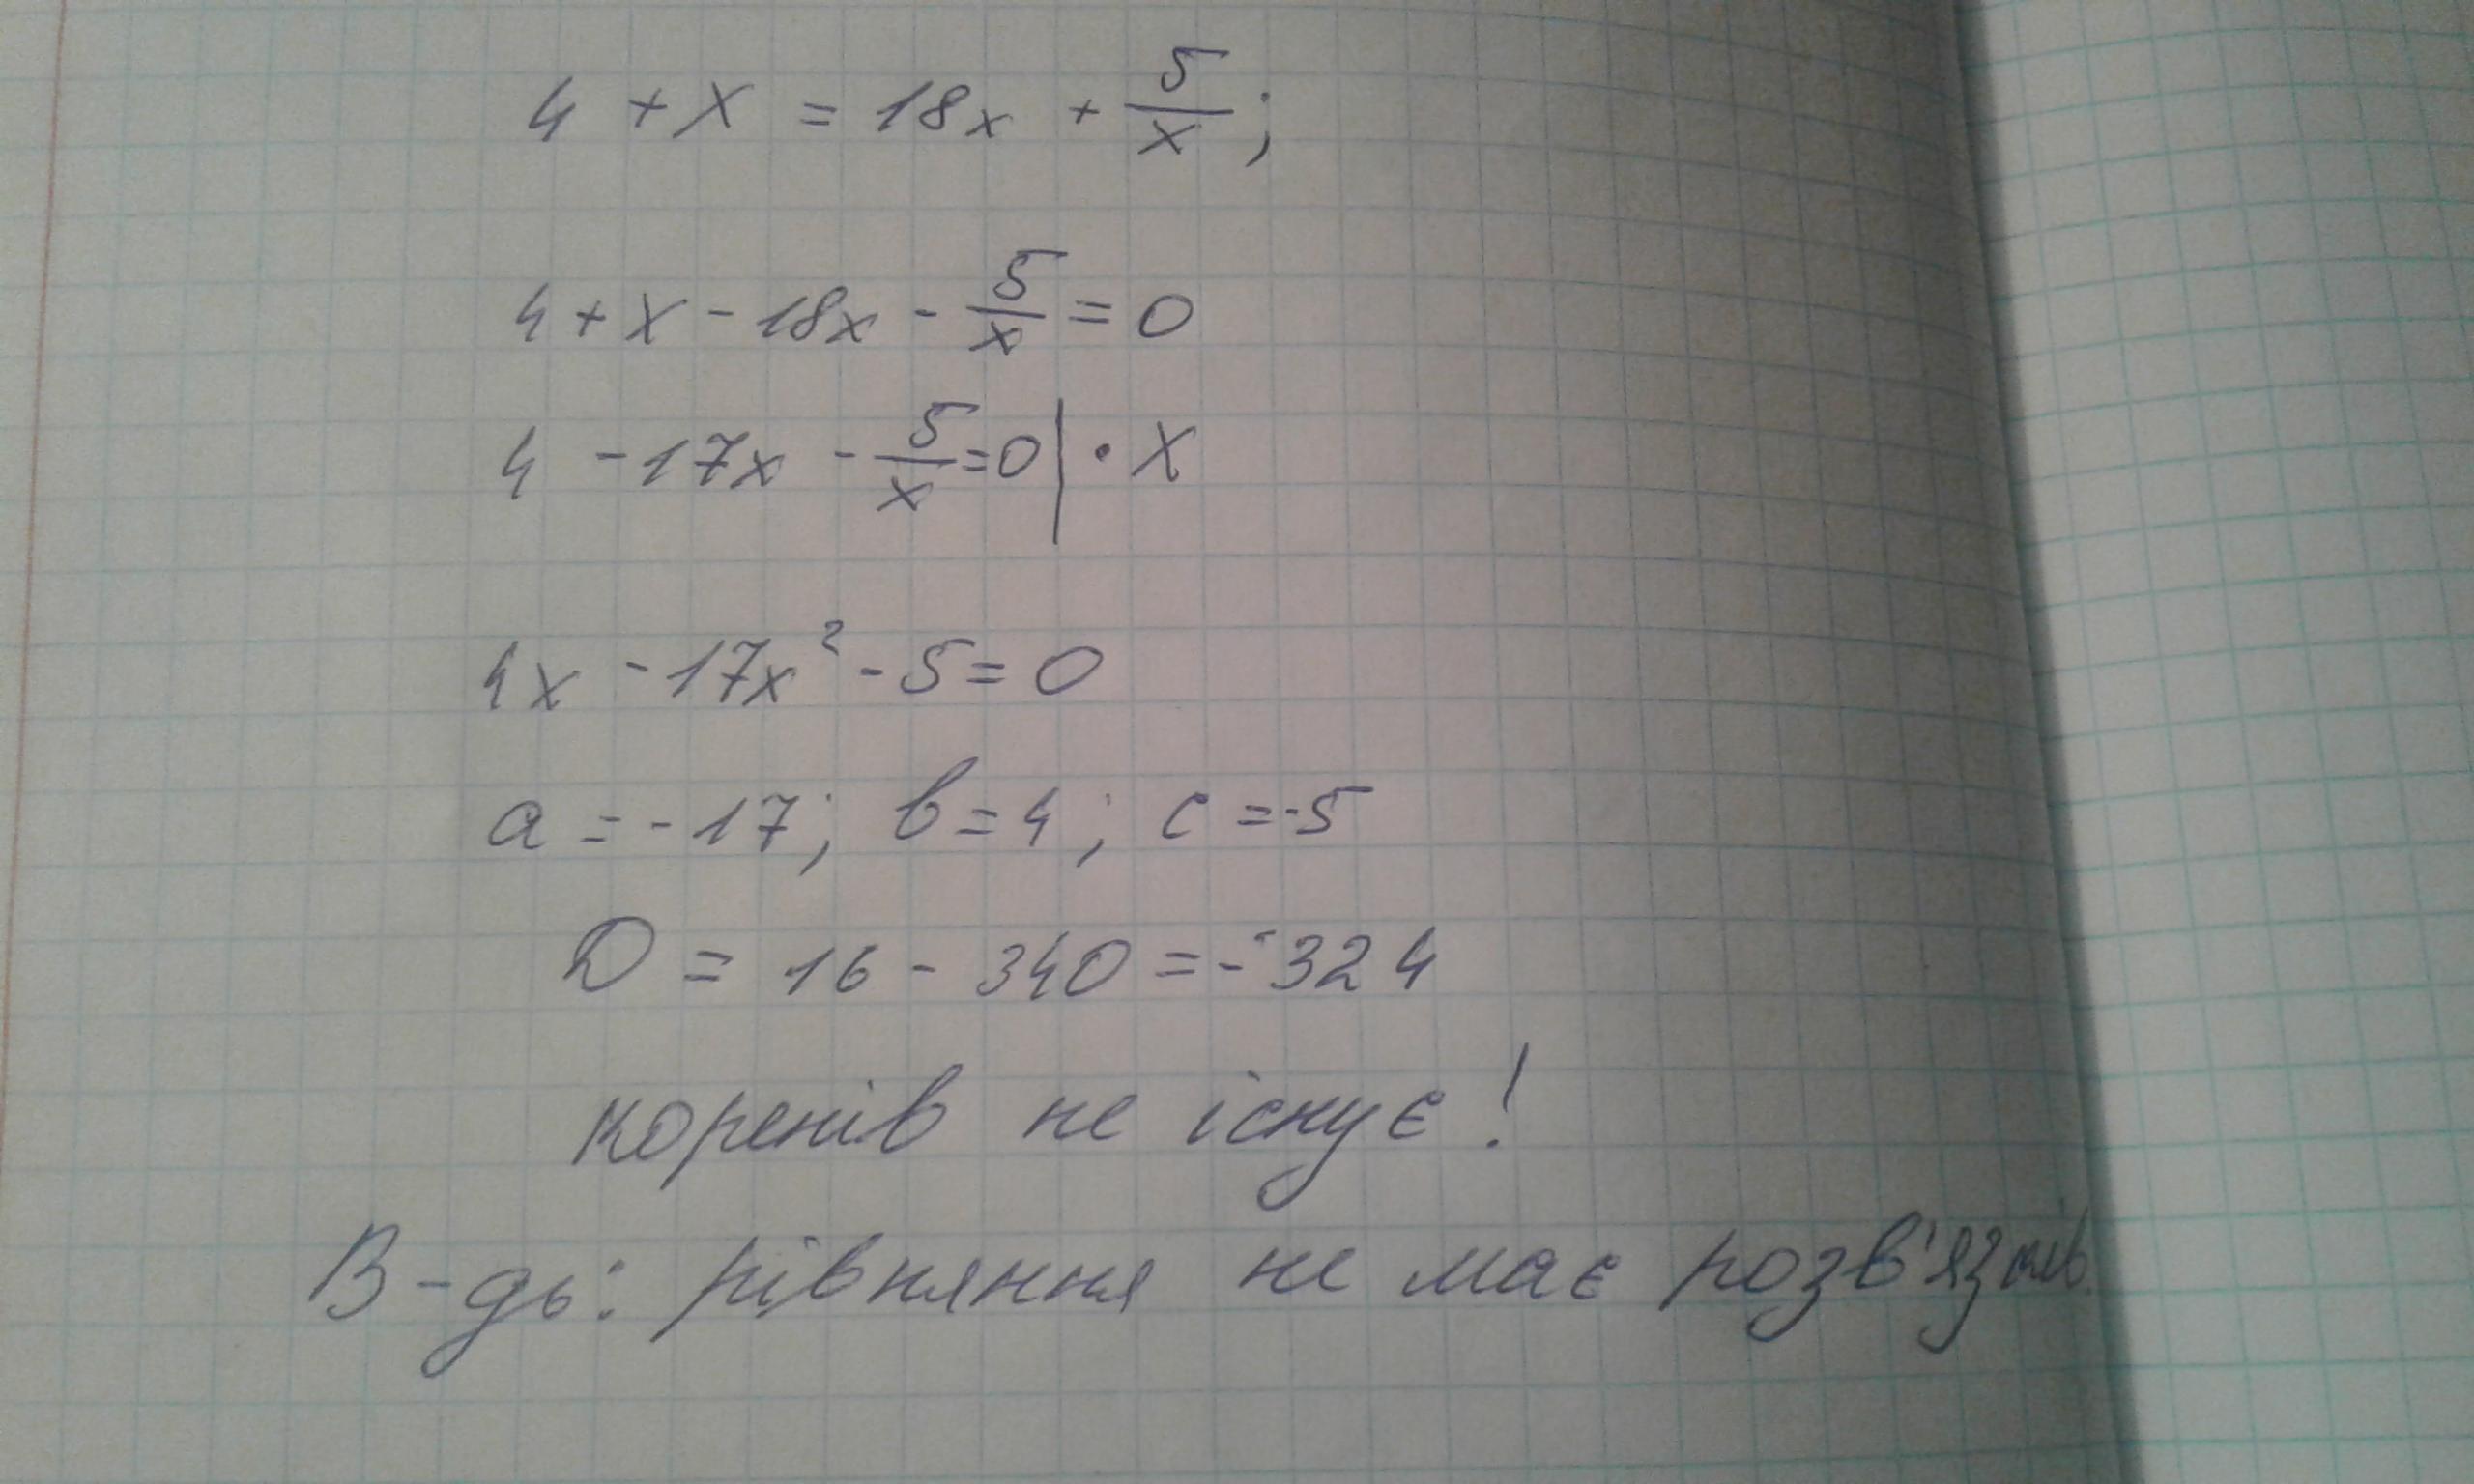 4 + x = 18x + 5/x;
4 + x - 18x - 5/x = 0
4 - 17x - 5/x = 0 | · x
4x - 17x² - 5 = 0
a = -17; b = 4; c = -5
D = 16 - 340 = -324
коренів не існує!
В-дь: рівняння не має розв'язків.